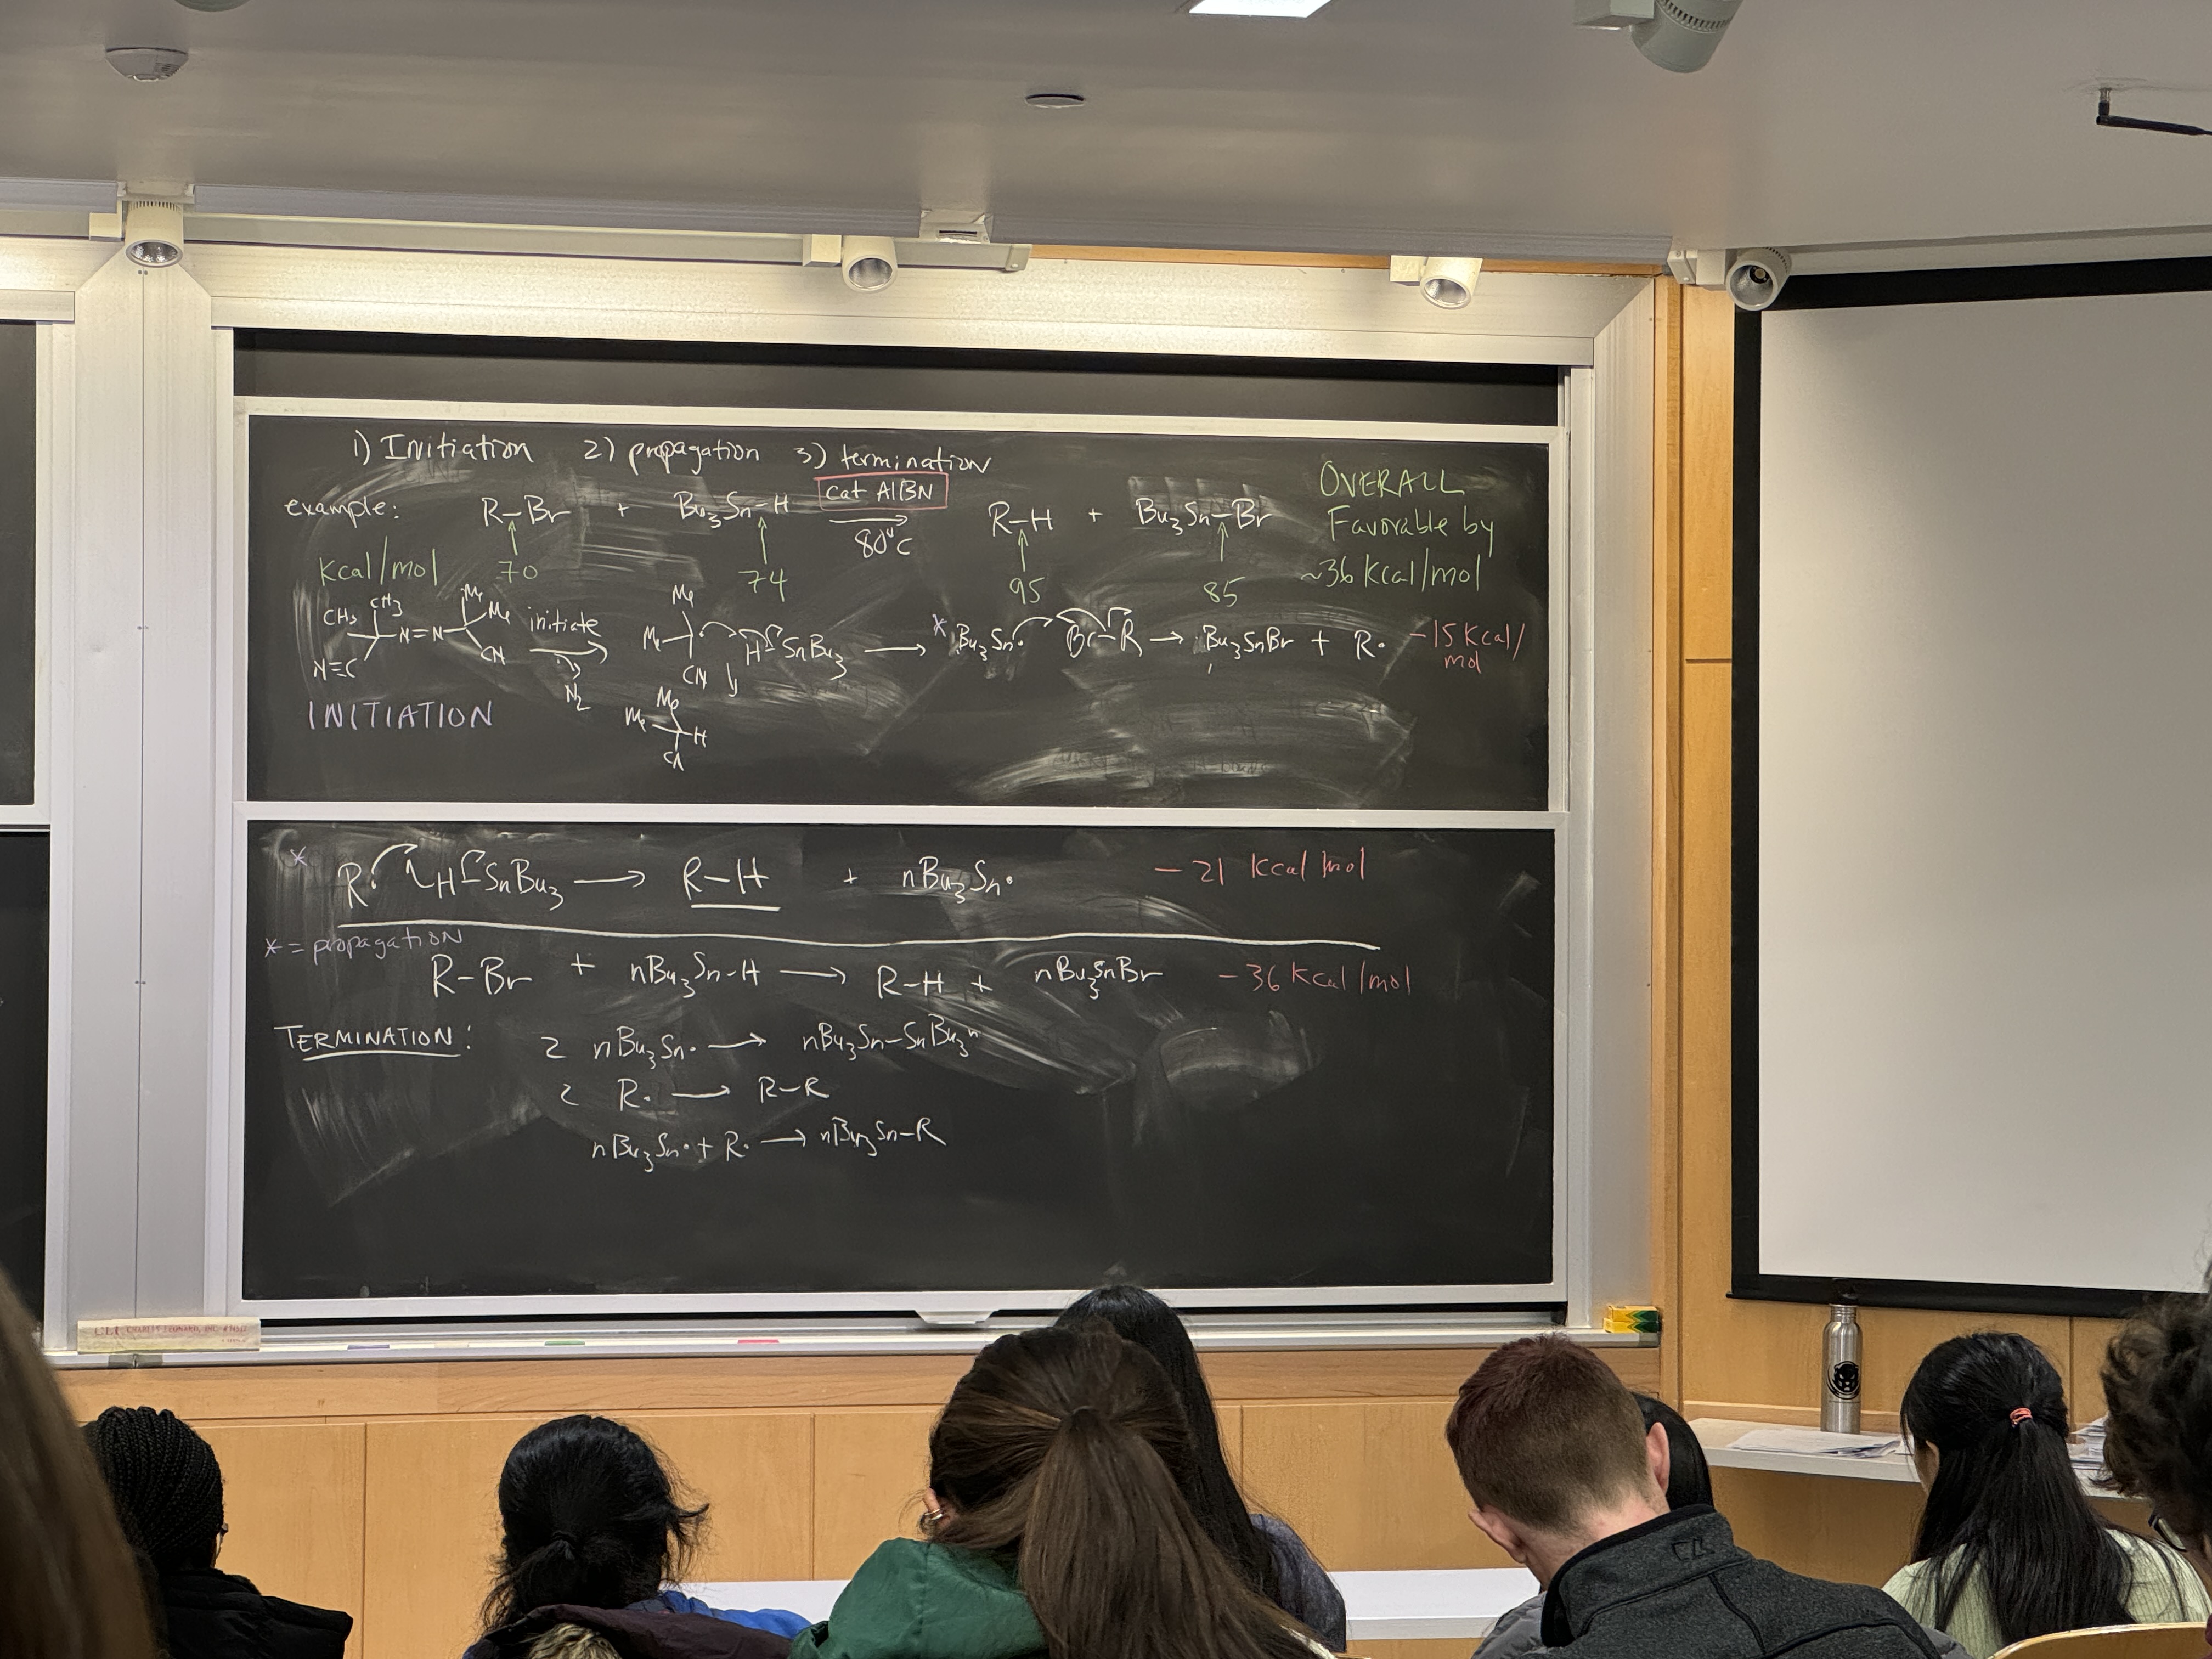 1) Initiation 2) propagation 3) termination
example: R-Br + Bu3Sn-H cat AIBN 80°C R-H + Bu3Sn-Br
OVERALL
Favorable by
~36 Kcal/mol
Kcal/mol 70 74 95 85
CH3 CH3 N=N Me Me CN N≡C initiate N2
Me Me CN H-SnBu3 → * Bu3Sn· Br-R → Bu3SnBr + R· -15 Kcal/
mol
INITIATION
Me Me H
* R· H-SnBu3 → R-H + nBu3Sn· -21 Kcal mol
* = propagation
R-Br + nBu3Sn-H → R-H + nBu3SnBr -36 Kcal/mol
TERMINATION: 2 nBu3Sn· → nBu3Sn-SnBu3n
2 R· → R-R
nBu3Sn· + R· → nBu3Sn-R